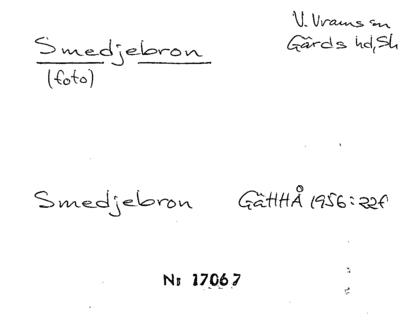 V. Vrams sn
Smedjebron
Gärds hd, Sk
(foto)
Smedjebron GäHHÅ 1956:22f
Nr 17067